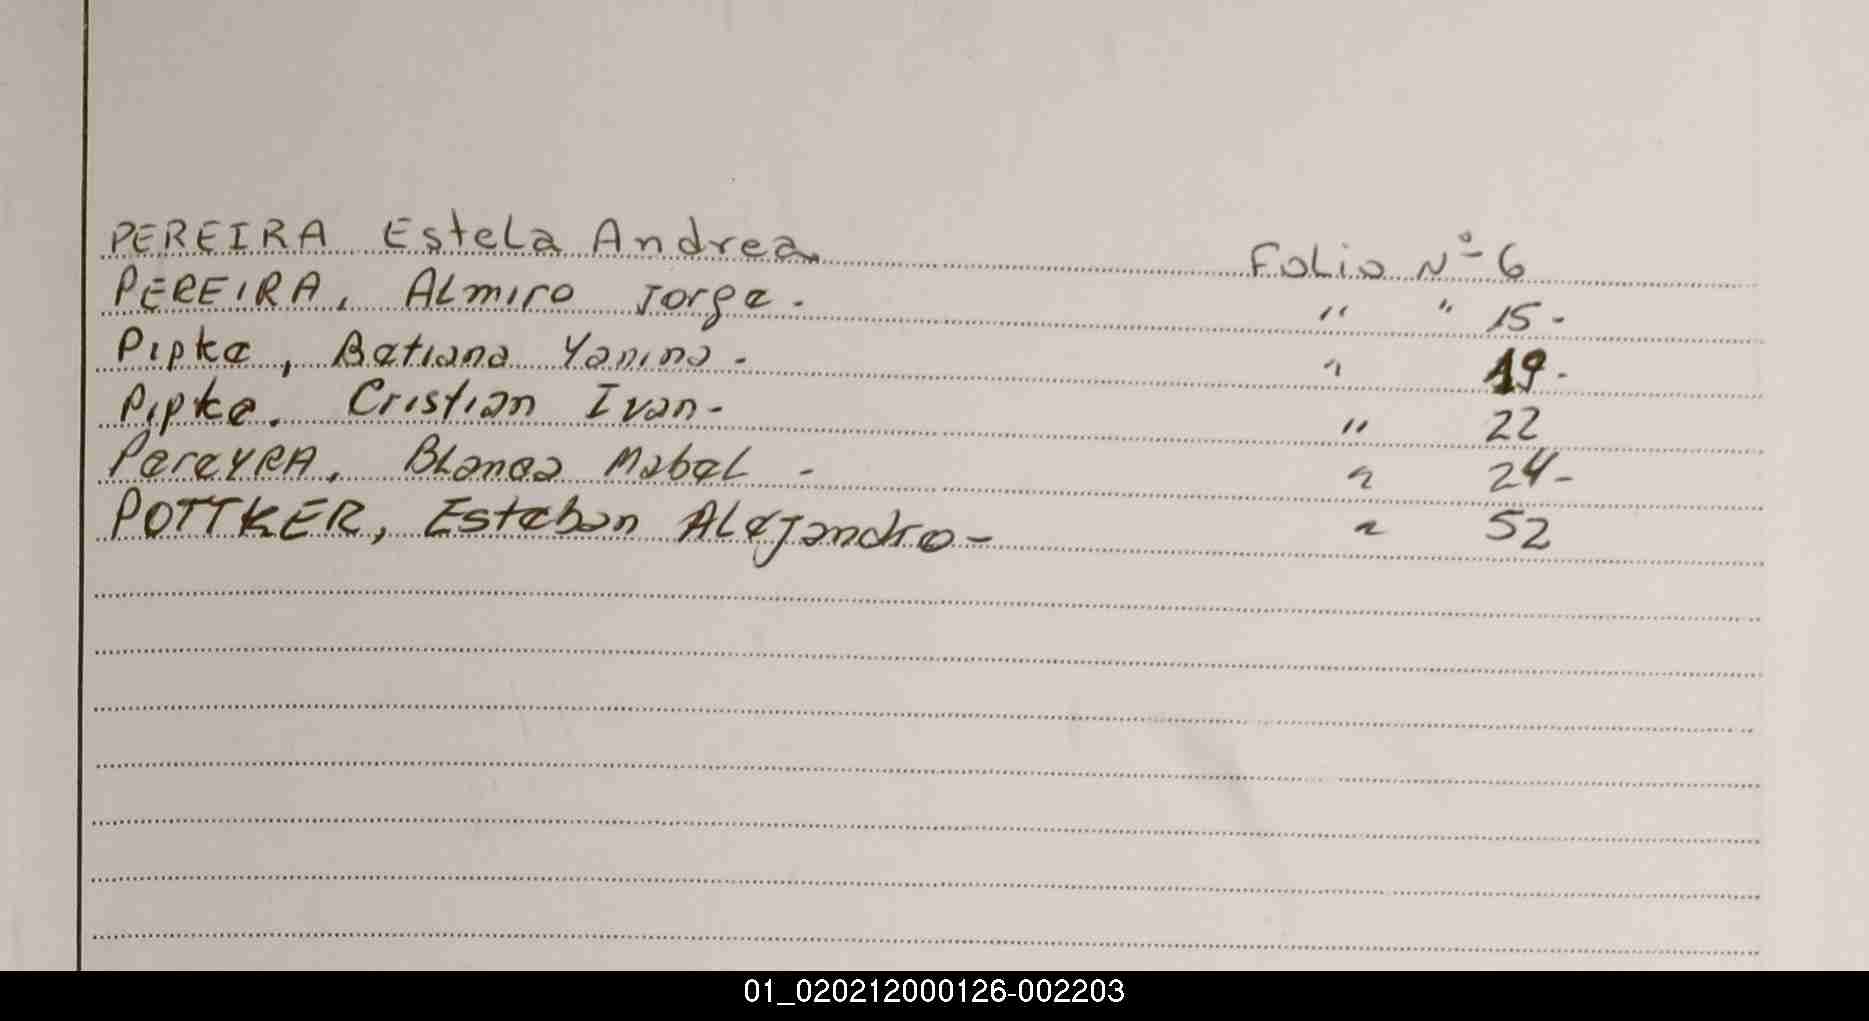 PEREIRA Estela Andrea. Folio Nº 6
PEREIRA, Almiro Jorge. " " 15-
Pipke, Betiana Yanina. " 19-
Pipke. Cristian Ivan- " 22
PereyRA, Blanca Mabel - " 24-
POTTKER, Esteban Alejandro- " 52
01_020212000126-002203